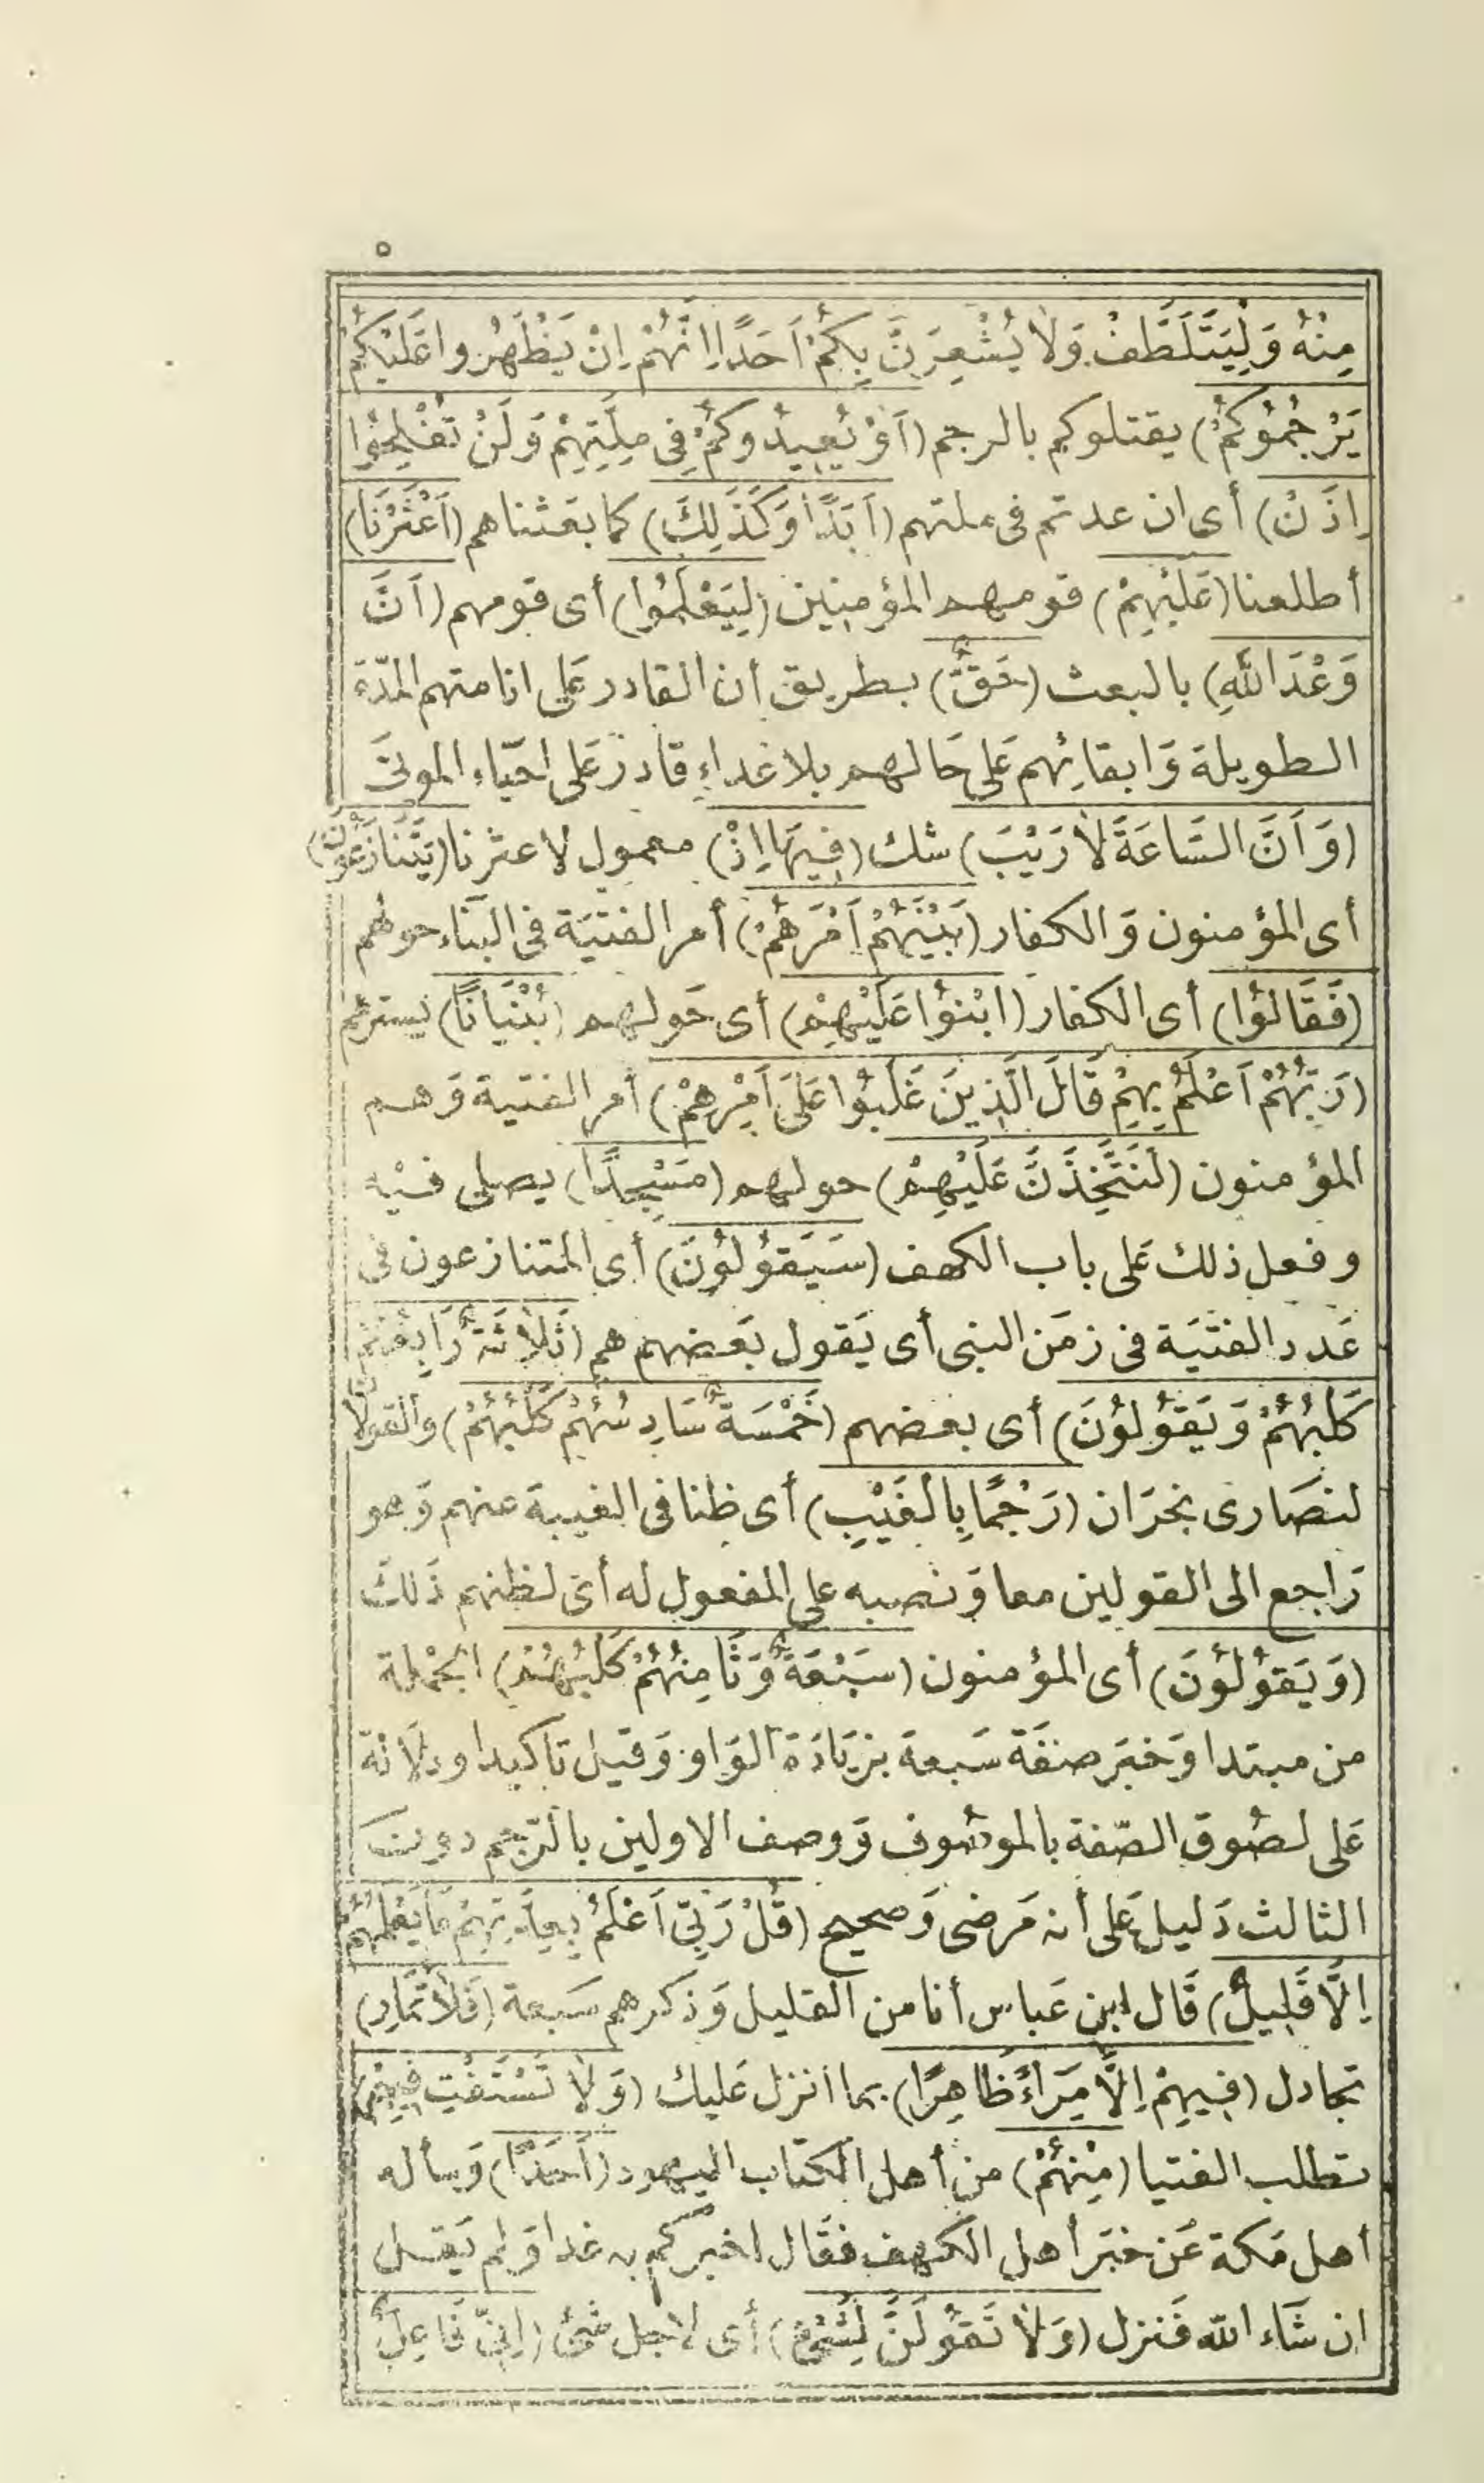 ٥
مِنْهُ وَلْيَتَلَطَّفْ وَلَا يُشْعِرَنَّ بِكُمْ اَحَدًا اِنَّهُمْ اِنْ يَظْهَرُوا عَلَيْكُمْ
يَرْجُمُوكُمْ) يقتلوكم بالرجم (اَوْ يُعِيدُوكُمْ فِى مِلَّتِهِمْ وَلَنْ تُفْلِحُوا
اِذَنْ) أى ان عدتم فى ملتهم (اَبَدًا وَكَذَلِكَ) كما بعثناهم (اَعْثَرْنَا)
أطلعنا (عَلَيْهِمْ) قومهم المؤمنين (لِيَعْلَمُوا) أى قومهم (اَنَّ
وَعْدَ اللّٰهِ) بالبعث (حَقٌّ) بطريق أن القادر عَلى انامتهم المدّة
الطويلة وَابقائهم عَلى حَالهم بلا غداءٍ قادر عَلى احيَاء الموتى
(وَاَنَّ السَّاعَةَ لَا رَيْبَ) شك (فِيهَا اِذْ) معمول لاعثرنا (يَتَنَازَعُونَ)
أى المؤمنون وَالكفار (بَيْنَهُمْ اَمْرَهُمْ) أمر الفتيَة فى البنَاء حولهم
(فَقَالُوا) أى الكفار (ابْنُوا عَلَيْهِمْ) أى حَولهم (بُنْيَانًا) يسترهم
(رَبُّهُمْ اَعْلَمُ بِهِمْ قَالَ الَّذِينَ غَلَبُوا عَلَى اَمْرِهِمْ) أمر الفتية وَهم
المؤمنون (لَنَتَّخِذَنَّ عَلَيْهِمْ) حولهم (مَسْجِدًا) يصلى فيْه
وفعل ذلك عَلى باب الكهف (سَيَقُولُونَ) أى المتنازعون فى
عَدد الفتيَة فى زمَن النبى أى يَقول بَعضهم هم (ثَلَاثَةٌ رَابِعُهُمْ
كَلْبُهُمْ وَيَقُولُونَ) أى بعضهم (خَمْسَةٌ سَادِسُهُمْ كَلْبُهُمْ) والقولان
لنصَارى نجرَان (رَجْمًا بِالْغَيْبِ) أى ظنا فى الغيبة عنهم وَهو
رَاجع الى القولين معا وَنصبه على المفعول له أى لظنهم ذَلك
(وَيَقُولُونَ) أى المؤمنون (سَبْعَةٌ وَثَامِنُهُمْ كَلْبُهُمْ) الجُمْلة
من مبتدا وَخبَر صفَة سَبعة بزيَادَة الوَاو وَقيل تاكيدا ودلَالة
عَلى لصُوق الصّفة بالموصُوف وَوصف الاولين بالرّجم دون
الثالث دَليل عَلى أنه مَرضى وَصحيح (قُلْ رَبِّى اَعْلَمُ بِعِدَّتِهِمْ مَا يَعْلَمُهُمْ
اِلَّا قَلِيلٌ) قَال ابن عَباس أنا من القليل وَذكرهم سَبعة (فَلَا تُمَارِ)
تجادل (فِيهِمْ اِلَّا مِرَاءً ظَاهِرًا) بما انزل عَليك (وَلَا تَسْتَفْتِ فِيهِمْ)
تطلب الفتيا (مِنْهُمْ) من أهل الكتاب اليهود (اَحَدًا) وَسأله
أهل مَكة عَن خبَر أهل الكهف فقَال اخبركم به غدا وَلم يَقل
ان شَاء الله فَنزل (وَلَا تَقُولَنَّ لِشَىْءٍ) أى لاجل شئ (اِنِّى فَاعِلٌ